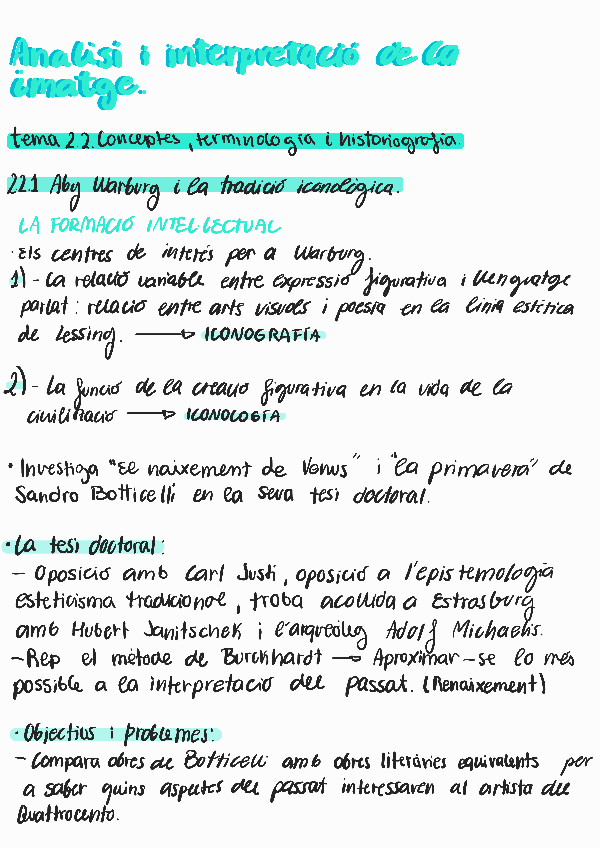 Analisi i interpretació de la
imatge.
tema 2.2. Conceptes, terminologia i historiografia.
2.2.1 Aby Warburg i la tradició iconològica.
LA FORMACIÓ INTEL·LECTUAL
· Els centres de interés per a Warburg.
1) - La relació variable entre expressió figurativa i llenguatge
parlat: relació entre arts visuals i poesia en la línia estètica
de Lessing. → ICONOGRAFÍA
2) - La funció de la creació figurativa en la vida de la
civilització → ICONOLOGÍA
· Investiga "El naixement de Venus" i "la primavera" de
Sandro Botticelli en la seva tesi doctoral.
· La tesi doctoral:
- Oposició amb Carl Justi, oposició a l'epistemologia
esteticisma tradicional, troba acollida a Estrasburg
amb Hubert Janitschek i l'arqueòleg Adolf Michaelis.
- Rep el mètode de Burckhardt → Aproximar-se lo més
possible a la interpretació del passat. (Renaixement)
· Objectius i problemes:
- Compara obres de Botticelli amb obres literàries equivalents per
a saber quins aspectes del passat interessaven al artista del
Quattrocento.